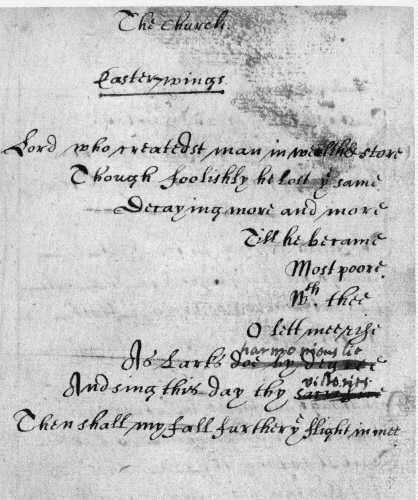 The Church.
Easter-wings
Lord who createdst man in wealth & store
Though foolishly he lost yͤ same
Decaying more and more
Till he became
Most poore.
Wth. thee
O lett mee rise
harmoniouslie
As Larks doe by degree
victories
And sing this day thy
Then shall my fall further yͤ flight in mee